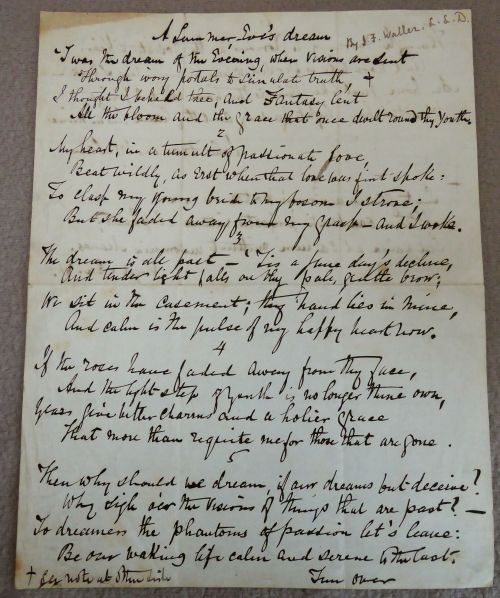 A Summer Eve's dream
By J. F. Waller. L. L. D.
'Twas the dream of the Evening, when Visions are sent
Through ivory portals to simulate truth +
I thought I beheld thee, and Fantasy lent
All the bloom and the grace that once dwelt round thy youth.
2
My heart, in a tumult of passionate love,
Beat wildly, as erst when that love was first spoke:
To clasp my young bride to my bosom I strove;
But she faded away from my grasp – and I woke.
3
The dream is all past – 'Tis a June day's decline,
And tender light falls on thy pale, gentle brow;
We sit in the casement; thy hand lies in mine,
And calm is the pulse of my happy heart now.
4
If the roses have faded away from thy face,
And the light step of youth is no longer thine own,
Years give better charms and a holier grace
That more than requite me for those that are gone.
5
Then why should we dream, if our dreams but deceive?
Why sigh o'er the visions of things that are past? –
To dreamers the phantoms of passion let's leave:
Be our waking life calm and serene to the last.
+ see note at other side
Turn over